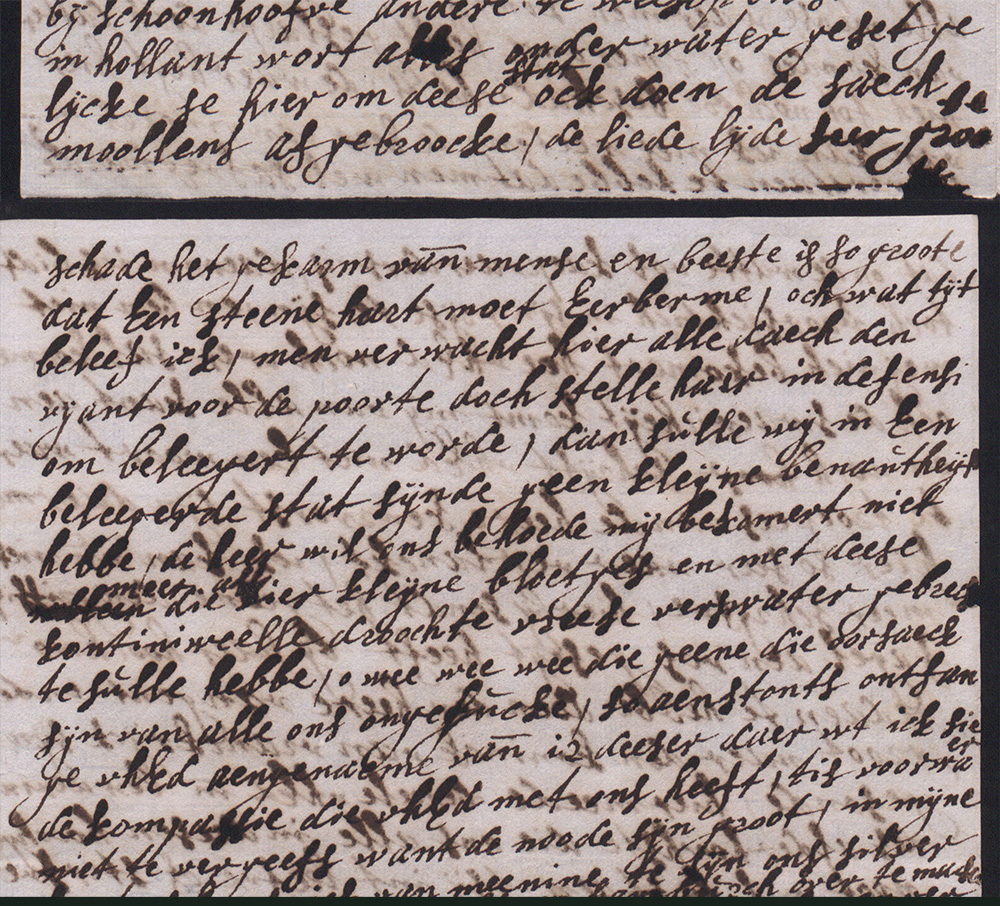 bij schoonhoofve andere te weesop ons
in hollant wort alles onder water geset ge
stat
lijcke se hier om deese ock doen de saech
moollens afgebroocke / de liede lijde seer groo
te
schade het gekarm van mense en beeste is so groote
dat Een steene hart moet Eerberme / och wat tijt
beleef ick / men verwacht hier alle daech den
vyant voor de poorte doch stelle haer in defensi
om beleegert te worde / dan sulle wij in Een
beleegerde stat sijnde geen kleijne benautheijt
hebbe / de heer wil ons behoede mij bekomert niet
meer als
die hier kleijne bloetges en met deese
kontiniweelle droochte vreese verswater gebreck
te sulle hebbe / o wee wee wee die geene die oorsaeck
sijn van alle ons ongelucke / so aenstonts ontfan
ge vhEd aengenaeme van 12 deeser daer wt ick sie
de kompassie die vhEd met ons heeft / tis voorwaer
niet te vergeefs want de noode sijn groot / in mijne
van meeninge te sijn ons silver
over te